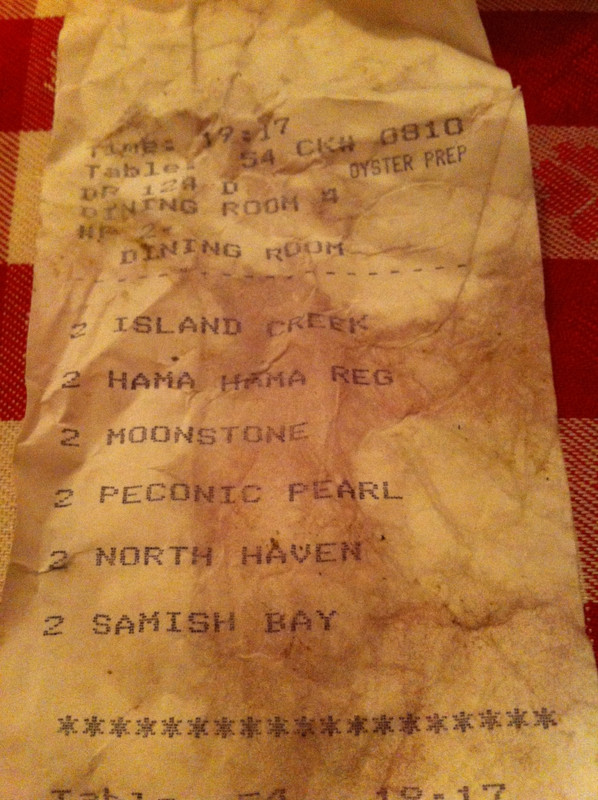 Time: 19:17
Table: 54 CK# 0810
OYSTER PREP
DR 124 D
DINING ROOM 4
NP 2
DINING ROOM
- - - - - - - - - - - - - - - - - - - - -
2 ISLAND CREEK
2 HAMA HAMA REG
2 MOONSTONE
2 PECONIC PEARL
2 NORTH HAVEN
2 SAMISH BAY
********************
Table 54 19:17